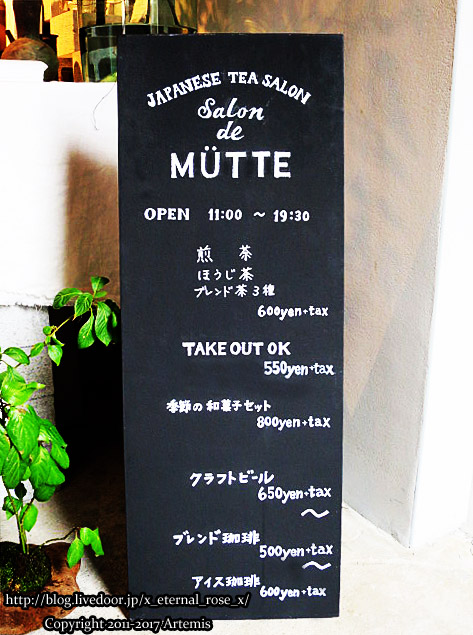 JAPANESE TEA SALON
Salon
de
MÜTTE
OPEN 11:00 〜 19:30
煎 茶
ほうじ茶
ブレンド茶3種
600yen+tax
TAKE OUT OK
550yen+tax
季節の和菓子セット
800yen+tax
クラフトビール
650yen+tax
〜
ブレンド珈琲
500yen+tax
〜
アイス珈琲
600yen+tax
http://blog.livedoor.jp/x_eternal_rose_x/
Copyright 2011-2017 Artemis